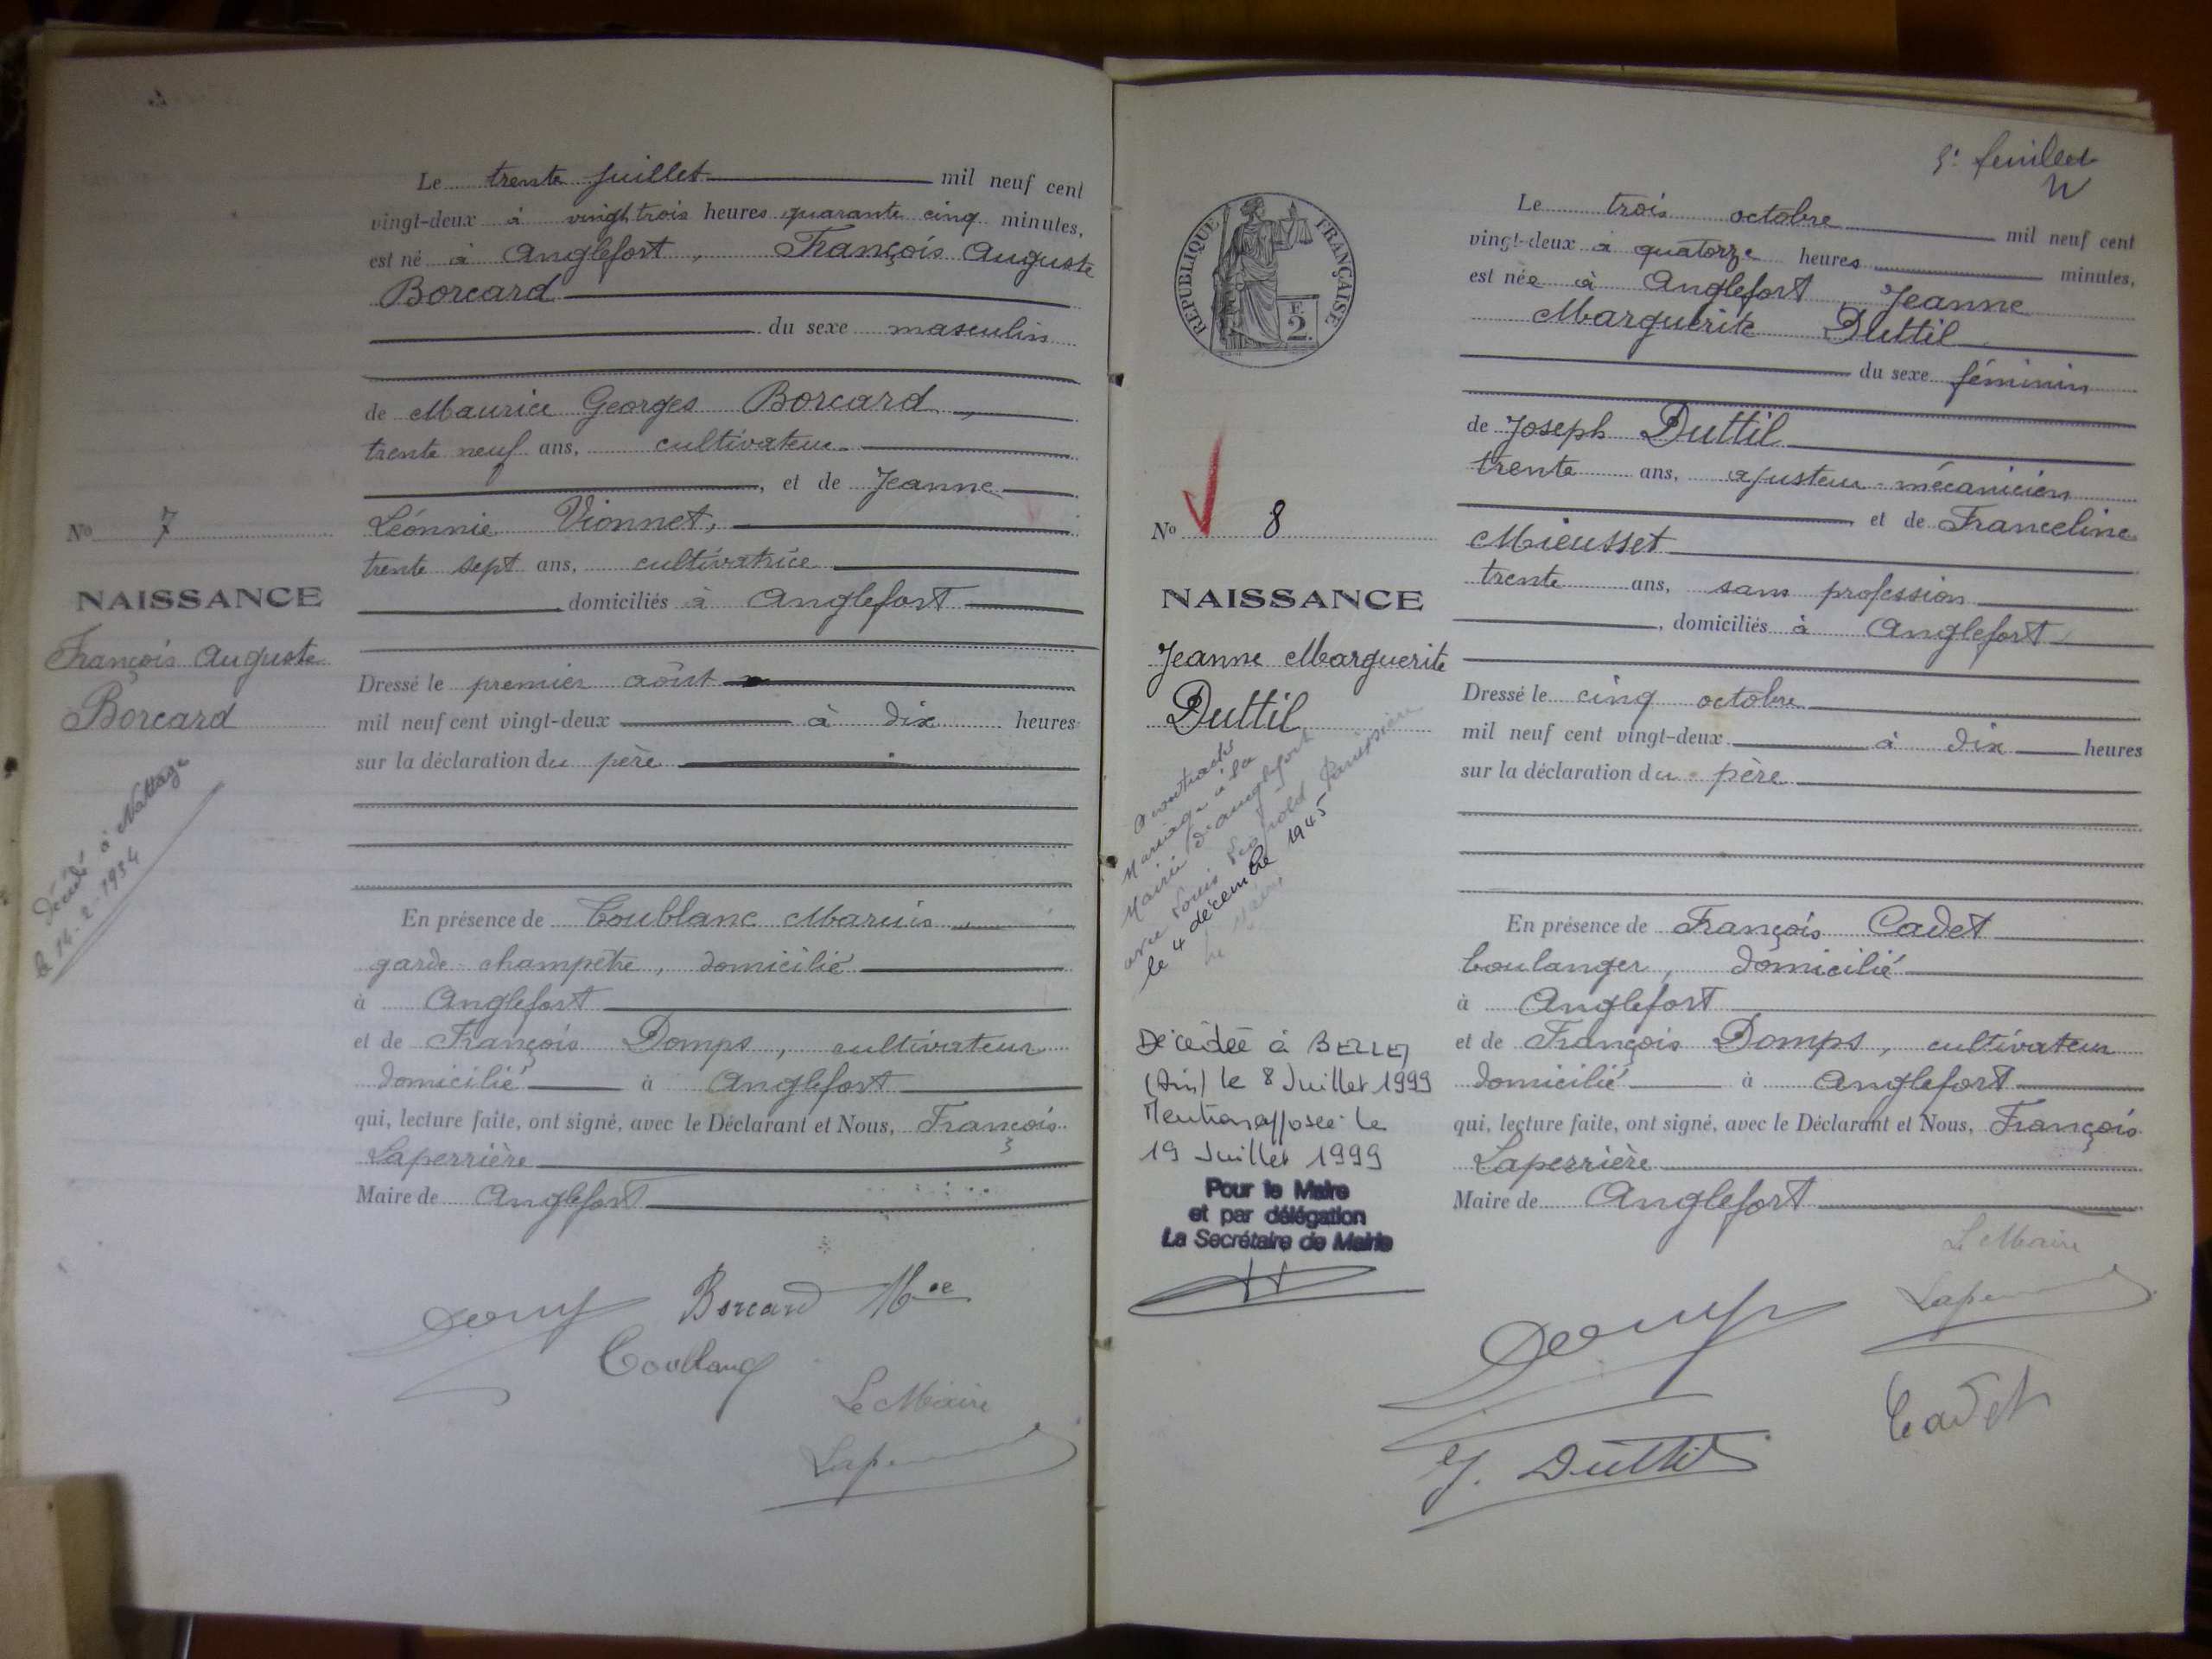 Le trente juillet mil neuf cent
vingt-deux à vingt trois heures quarante cinq minutes,
est né à Anglefort, François Auguste
Borcard
du sexe masculin
de Maurice Georges Borcard,
trente neuf ans, cultivateur
, et de Jeanne
Léonnie Vionnet,
trente sept ans, cultivatrice
domiciliés à Anglefort
Dressé le premier août
mil neuf cent vingt-deux à dix heures
sur la déclaration du père
En présence de Coublanc Marius,
garde-champêtre, domicilié
à Anglefort
et de François Domps, cultivateur
domicilié à Anglefort
qui, lecture faite, ont signé, avec le Déclarant et Nous, François
Laperrière
Maire de Anglefort
Borcard Mce
Coublanc
Le Maire
No 7
NAISSANCE
François Auguste
Borcard
Décédé à Nattage
le 14-2-1934
5e feuillet
REPUBLIQUE FRANÇAISE
E
2.
No 8
NAISSANCE
Jeanne Marguerite
Duttil
A contracté
Mariage à la
Mairie d'Anglefort
avec Louis Léopold
le 4 décembre 1945
Le Maire,
Décédée à BELLEY
(Ain) le 8 Juillet 1999
Mention apposée le
19 Juillet 1999
Pour le Maire
et par délégation
La Secrétaire de Mairie
Le trois octobre mil neuf cent
vingt-deux à quatorze heures minutes,
est née à Anglefort Jeanne
Marguerite Duttil
du sexe féminin
de Joseph Duttil
trente ans, ajusteur-mécanicien
et de Franceline
Mieusset
trente ans, sans profession
, domiciliés à Anglefort
Dressé le cinq octobre
mil neuf cent vingt-deux à dix heures
sur la déclaration du père
En présence de François Cadet
boulanger, domicilié
à Anglefort
et de François Domps, cultivateur
domicilié à Anglefort
qui, lecture faite, ont signé, avec le Déclarant et Nous, François
Laperrière
Maire de Anglefort
Le Maire
Cadet
J. Duttil